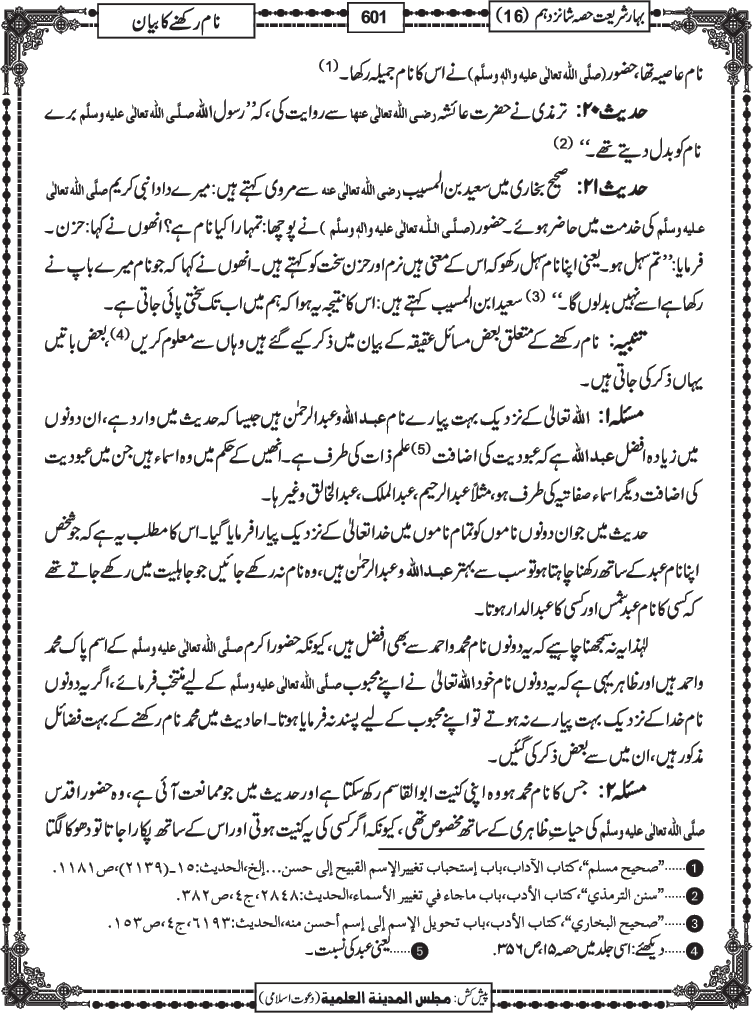 بہارشریعت حصہ شانزدہم (16)
601
نام رکھنے کا بیان
نام عاصیہ تھا، حضور (صلَّی اللہ تعالٰی علیہ واٰلہٖ وسلَّم) نے اس کا نام جمیلہ رکھا۔ (1)
حدیث ۲۰: ترمذی نے حضرت عائشہ رضی اللہ تعالٰی عنھا سے روایت کی، کہ ’’رسول اللہ صلَّی اللہ تعالٰی علیہ وسلَّم برے
نام کو بدل دیتے تھے۔‘‘ (2)
حدیث ۲۱: صحیح بخاری میں سعید بن المسیب رضی اللہ تعالٰی عنہ سے مروی کہتے ہیں: میرے دادا نبی کریم صلَّی اللہ تعالٰی
علیہ وسلَّم کی خدمت میں حاضر ہوئے۔ حضور (صلَّی اللہ تعالٰی علیہ واٰلہٖ وسلَّم) نے پوچھا: تمہارا کیا نام ہے؟ انھوں نے کہا: حزن۔
فرمایا: ’’تم سہل ہو۔ یعنی اپنا نام سہل رکھو کہ اس کے معنی ہیں نرم اور حزن سخت کو کہتے ہیں۔ انھوں نے کہا کہ جو نام میرے باپ نے
رکھا ہے اسے نہیں بدلوں گا۔‘‘ (3) سعید ابن المسیب کہتے ہیں: اس کا نتیجہ یہ ہوا کہ ہم میں اب تک سختی پائی جاتی ہے۔
تنبیہ: نام رکھنے کے متعلق بعض مسائل عقیقہ کے بیان میں ذکر کیے گئے ہیں وہاں سے معلوم کریں (4)، بعض باتیں
یہاں ذکر کی جاتی ہیں۔
مسئلہ ۱: اللہ تعالٰی کے نزدیک بہت پیارے نام عبد اللہ و عبد الرحمٰن ہیں جیسا کہ حدیث میں وارد ہے، ان دونوں
میں زیادہ افضل عبد اللہ ہے کہ عبودیت کی اضافت (5) علم ذات کی طرف ہے۔ انھیں کے حکم میں وہ اسماء ہیں جن میں عبودیت
کی اضافت دیگر اسماء صفاتیہ کی طرف ہو، مثلاً عبد الرحیم، عبد الملک، عبد الخالق وغیرہا۔
حدیث میں جو ان دونوں ناموں کو تمام ناموں میں خدا تعالٰی کے نزدیک پیارا فرمایا گیا۔ اس کا مطلب یہ ہے کہ جو شخص
اپنا نام عبد کے ساتھ رکھنا چاہتا ہو تو سب سے بہتر عبد اللہ و عبد الرحمٰن ہیں، وہ نام نہ رکھے جائیں جو جاہلیت میں رکھے جاتے تھے
کہ کسی کا نام عبد شمس اور کسی کا عبد الدار ہوتا۔
لہٰذا یہ نہ سمجھنا چاہیے کہ یہ دونوں نام محمد و احمد سے بھی افضل ہیں، کیونکہ حضور اکرم صلَّی اللہ تعالٰی علیہ وسلَّم کے اسم پاک محمد
و احمد ہیں اور ظاہر یہی ہے کہ یہ دونوں نام خود اللہ تعالٰی نے اپنے محبوب صلَّی اللہ تعالٰی علیہ وسلَّم کے لیے منتخب فرمائے، اگر یہ دونوں
نام خدا کے نزدیک بہت پیارے نہ ہوتے تو اپنے محبوب کے لیے پسند نہ فرمایا ہوتا۔ احادیث میں محمد نام رکھنے کے بہت فضائل
مذکور ہیں، ان میں سے بعض ذکر کی گئیں۔
مسئلہ ۲: جس کا نام محمد ہو وہ اپنی کنیت ابو القاسم رکھ سکتا ہے اور حدیث میں جو ممانعت آئی ہے، وہ حضور اقدس
صلَّی اللہ تعالٰی علیہ وسلَّم کی حیاتِ ظاہری کے ساتھ مخصوص تھی، کیونکہ اگر کسی کی یہ کنیت ہوتی اور اس کے ساتھ پکارا جاتا تو دھوکا لگتا
1 ......’’صحیح مسلم‘‘، کتاب الآداب، باب إستحباب تغییر الإسم القبیح إلی حسن... إلخ، الحدیث: ۱۵۔(۲۱۳۹)، ص۱۱۸۱.
2 ......’’سنن الترمذي‘‘، کتاب الأدب، باب ماجاء في تغییر الأسماء، الحدیث: ۲۸۴۸، ج۴، ص۳۸۲.
3 ......’’صحیح البخاري‘‘، کتاب الأدب، باب تحویل الإسم إلی إسم أحسن منہ، الحدیث: ۶۱۹۳، ج۴، ص۱۵۳.
4 ......دیکھئے: اسی جلد میں حصہ ۱۵، ص۳۵۶. 5 ......یعنی عبد کی نسبت۔
پیش کش: مجلس المدینۃ العلمیۃ (دعوت اسلامی)